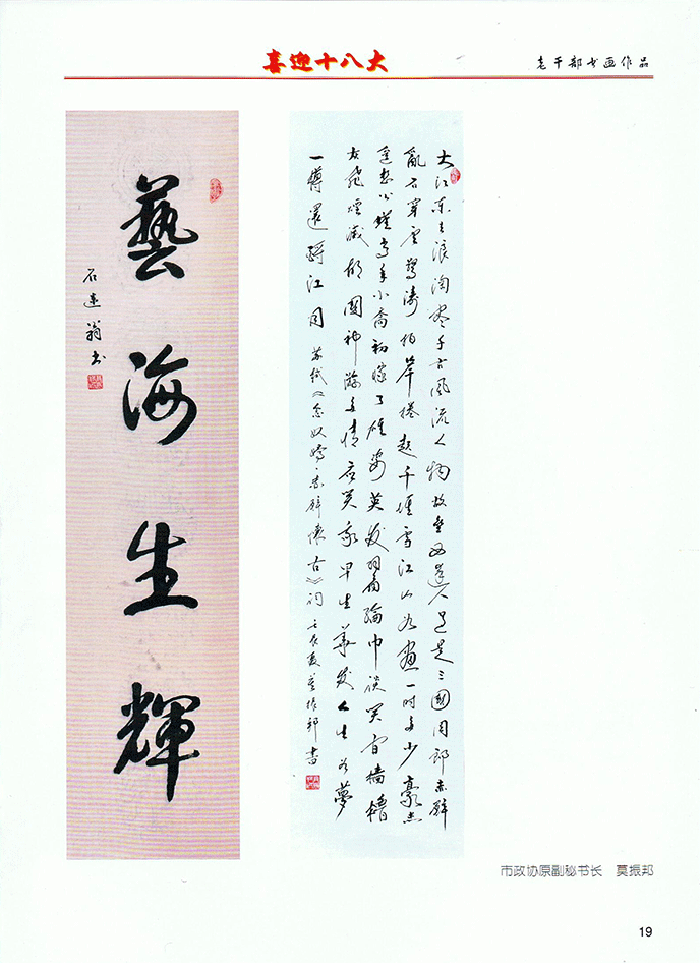 喜迎十八大
老干部书画作品
藝海生輝
石连翁书
大江东去浪淘尽千古風流人物故壘西邊人道是三國周郎赤壁
亂石穿空驚濤拍岸捲起千堆雪江山如畫一时多少豪杰
遥想公瑾當年小喬初嫁了雄姿英发羽扇綸巾谈笑间檣櫓
灰飛煙滅故國神游多情应笑我早生華发人生如夢
一樽還酹江月 苏轼《念奴娇·赤壁懷古》词 壬辰夏莫振邦書
市政协原副秘书长 莫振邦
19